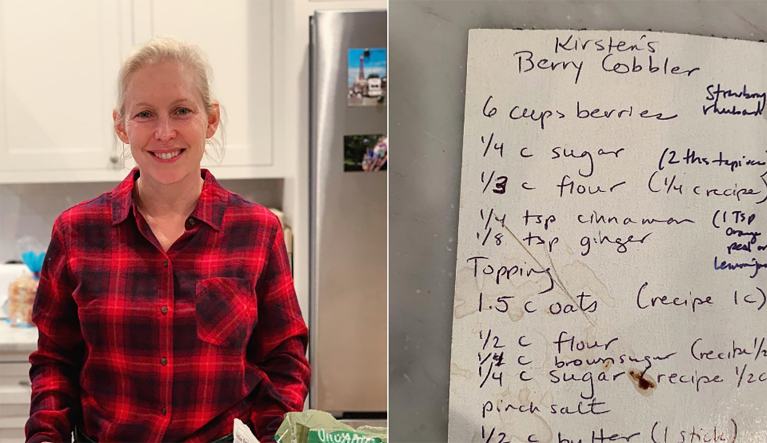 Kirsten's
Berry Cobbler
6 cups berries
Strawberry
rhubarb
1/4 c sugar (2 tbs tapioca)
1/3 c flour (1/4 c recipe)
1/4 tsp cinnamon (1 Tsp
orange
peel or
1/8 tsp ginger
Topping
1.5 c oats (recipe 1c)
1/2 c flour
1/4 c brown sugar (recipe 1/2
1/4 c sugar recipe 1/2 c
pinch salt
1/2 c butter (1 stick)